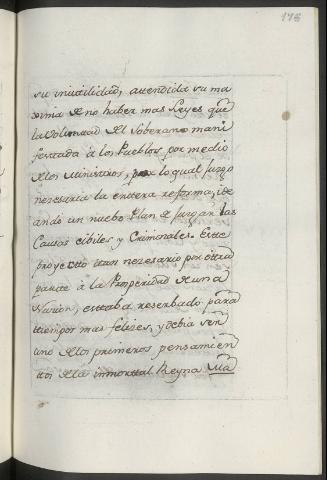 176
su inutilidad, atendida su ma
xima de no haber mas Leyes que
la Voluntad del Soberano mani
festada á los Pueblos por medio
de los Ministros, por lo qual juzgó
nezesaria la entera reforma, ide
ando un nuebo Plan de juzgar las
Causas cibiles y Criminales. Este
proyecto tan nezesario por otra
parte á la Properidad de una
Nacion, estaba reserbado para
tiempos mas felizes, y debia ser
uno de los primeros pensamien
tos de la inmortal Reyna